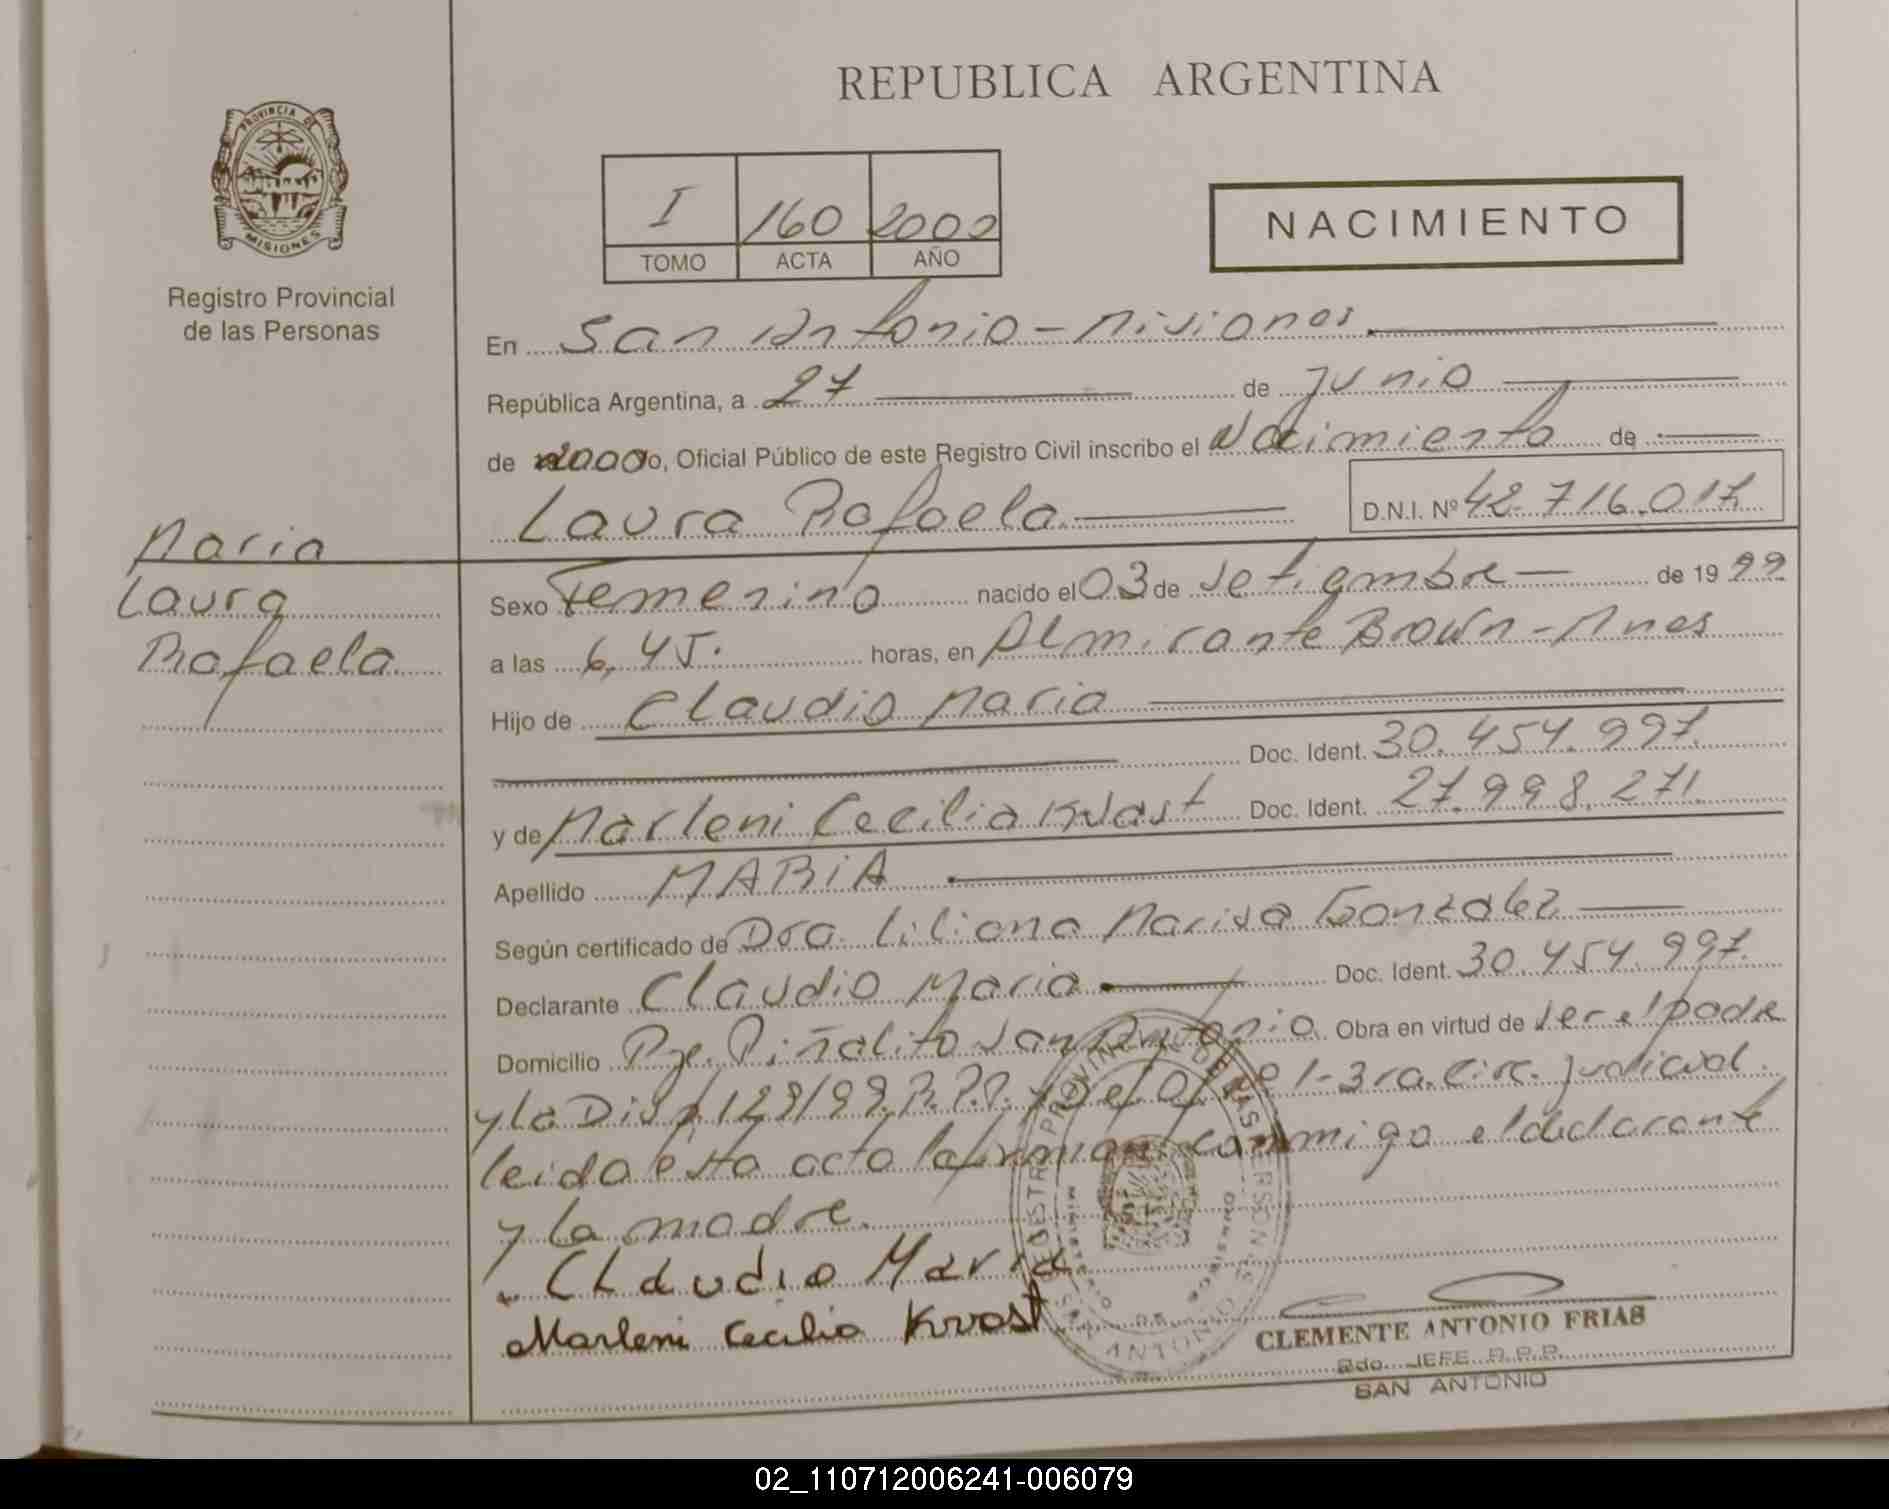 REPUBLICA ARGENTINA
PROVINCIA DE
MISIONES
Registro Provincial
de las Personas
I 160 2000
TOMO ACTA AÑO
NACIMIENTO
En San Antonio - Misiones.
República Argentina, a 27 de Junio
de 2000 o, Oficial Público de este Registro Civil inscribo el Nacimiento de
Laura Rafaela D.N.I. Nº 42.716.017
Maria
Laura
Rafaela
Sexo Femenino nacido el 03 de Setiembre de 19 99
a las 6,45. horas, en Almirante Brown - Mnes
Hijo de Claudio Maria
Doc. Ident. 30.454.997.
y de Marleni Cecilia Kvast Doc. Ident. 27.998.271.
Apellido MARIA
Según certificado de Dra. Liliana Marisa Gonzalez
Declarante Claudio Maria Doc. Ident. 30.454.997.
Domicilio Pje. Piñalito San Antonio. Obra en virtud de ser el padre
y la Disp. 129/99. R.P.P. 1-3ra. Circ. Judicial.
leida esta acta la firman conmigo el declarante
y la madre.
Claudio Maria
Marleni Cecilia Kvvast
CLEMENTE ANTONIO FRIAS
JEFE R.P.P.
SAN ANTONIO
02_110712006241-006079